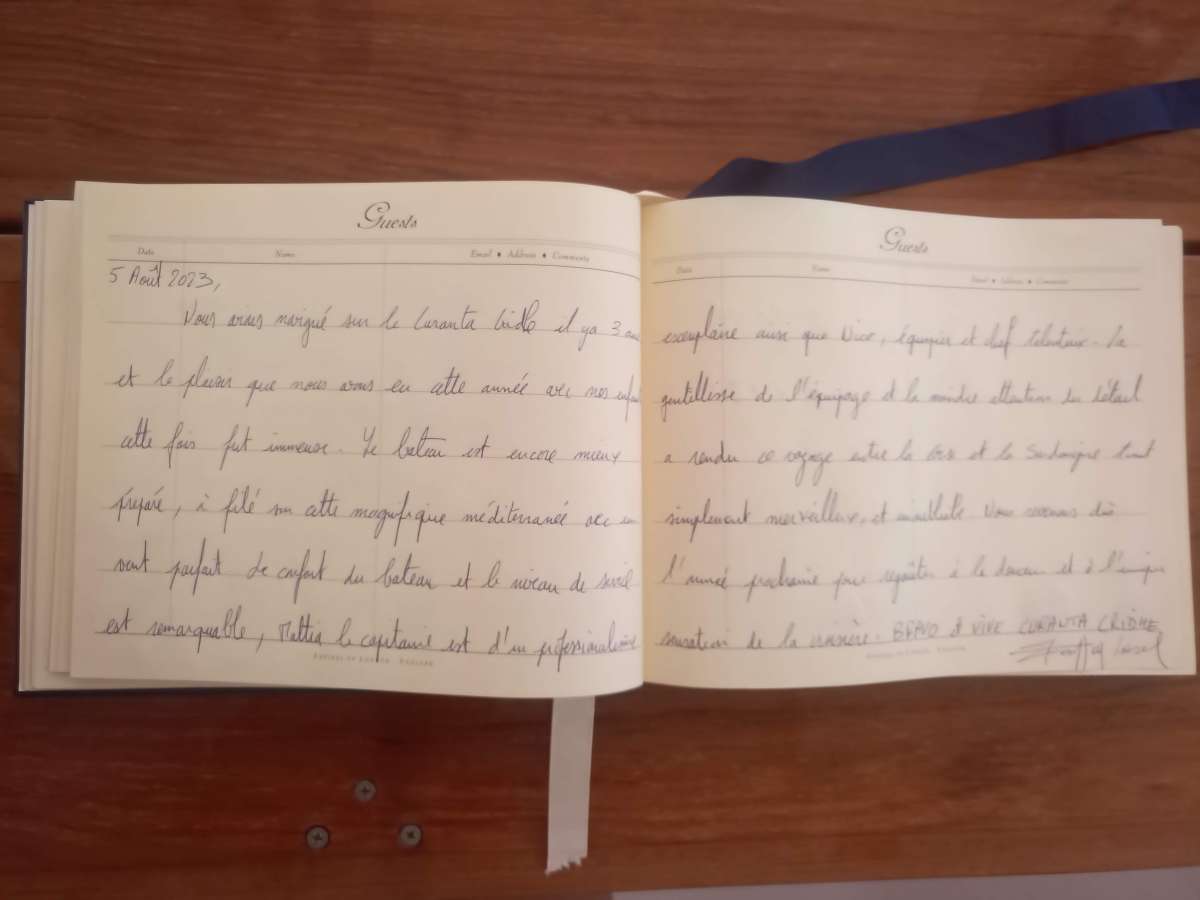 Guests
Date Name Email ♦ Address ♦ Comments
5 Août 2023,
Nous avions navigué sur le Curanta Cridhe il y a 3 ans
et le plaisir que nous avons eu cette année avec nos enfants
cette fois fut immense. Le bateau est encore mieux
préparé, à filé sur cette magnifique méditerranée avec un
vent parfait Le confort du bateau et le niveau de
est remarquable, Mattia le capitaine est d'un professionnalisme
Guests
Date Name Email ♦ Address ♦ Comments
exemplaire ainsi que Nico, équipier et chef talentueux. La
gentillesse de l'équipage et la moindre attention du détail
a rendu ce voyage entre la Corse et la Sardaigne tout
simplement merveilleux, et inoubliable. Nous revenons dès
l'année prochaine pour regoûter à la douceur et à l'unique
sensation de la croisière. BRAVO & VIVE CURANTA CRIDHE